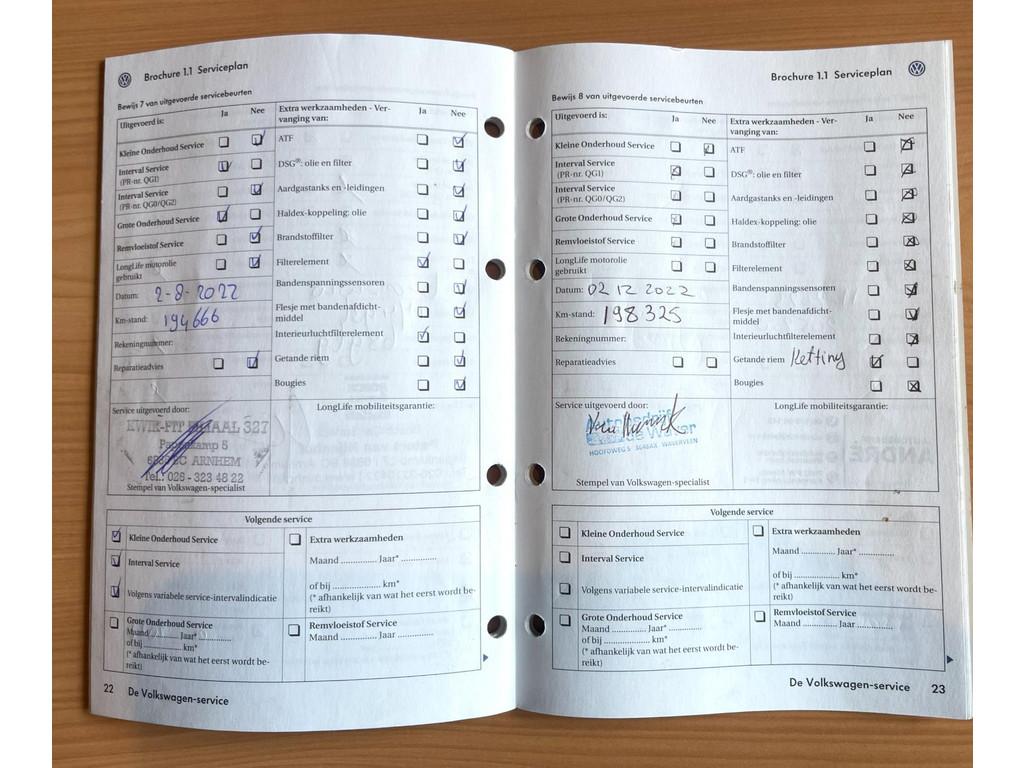 Brochure 1.1 Serviceplan
Bewijs 7 van uitgevoerde servicebeurten
Uitgevoerd is: Ja Nee
Kleine Onderhoud Service
Interval Service
(PR-nr. QGI)
Interval Service
(PR-nr. QG0/QG2)
Grote Onderhoud Service
Remvloeistof Service
LongLife motorolie
gebruikt
Datum: 2-8-2022
Km-stand: 194666
Rekeningnummer:
Reparatieadvies
Extra werkzaamheden - Ver-
vanging van: Ja Nee
ATF
DSG®: olie en filter
Aardgastanks en -leidingen
Haldex-koppeling: olie
Brandstoffilter
Filterelement
Bandenspanningssensoren
Flesje met bandenafdicht-
middel
Interieurluchtfilterelement
Getande riem
Bougies
Service uitgevoerd door:
KWIK-FIT FILIAAL 327
ARNHEM
Tel.: 026 - 323 48 22
Stempel van Volkswagen-specialist
LongLife mobiliteitsgarantie:
Volgende service
Kleine Onderhoud Service
Interval Service
Volgens variabele service-intervalindicatie
Grote Onderhoud Service
Maand Jaar*
of bij km*
(* afhankelijk van wat het eerst wordt be-
reikt)
Extra werkzaamheden
Maand Jaar*
of bij km*
(* afhankelijk van wat het eerst wordt be-
reikt)
Remvloeistof Service
Maand Jaar
22 De Volkswagen-service
Brochure 1.1 Serviceplan
Bewijs 8 van uitgevoerde servicebeurten
Uitgevoerd is: Ja Nee
Kleine Onderhoud Service
Interval Service
(PR-nr. QG1)
Interval Service
(PR-nr. QG0/QG2)
Grote Onderhoud Service
Remvloeistof Service
LongLife motorolie
gebruikt
Datum: 02 12 2022
Km-stand: 198325
Rekeningnummer:
Reparatieadvies
Extra werkzaamheden - Ver-
vanging van: Ja Nee
ATF
DSG®: olie en filter
Aardgastanks en -leidingen
Haldex-koppeling: olie
Brandstoffilter
Filterelement
Bandenspanningssensoren
Flesje met bandenafdicht-
middel
Interieurluchtfilterelement
Getande riem Ketting
Bougies
Service uitgevoerd door:
HOOFDWEG 5 WAVERVEEN
Stempel van Volkswagen-specialist
LongLife mobiliteitsgarantie:
Volgende service
Kleine Onderhoud Service
Interval Service
Volgens variabele service-intervalindicatie
Grote Onderhoud Service
Maand Jaar*
of bij km*
(* afhankelijk van wat het eerst wordt be-
reikt)
Extra werkzaamheden
Maand Jaar*
of bij km*
(* afhankelijk van wat het eerst wordt be-
reikt)
Remvloeistof Service
Maand Jaar
De Volkswagen-service 23